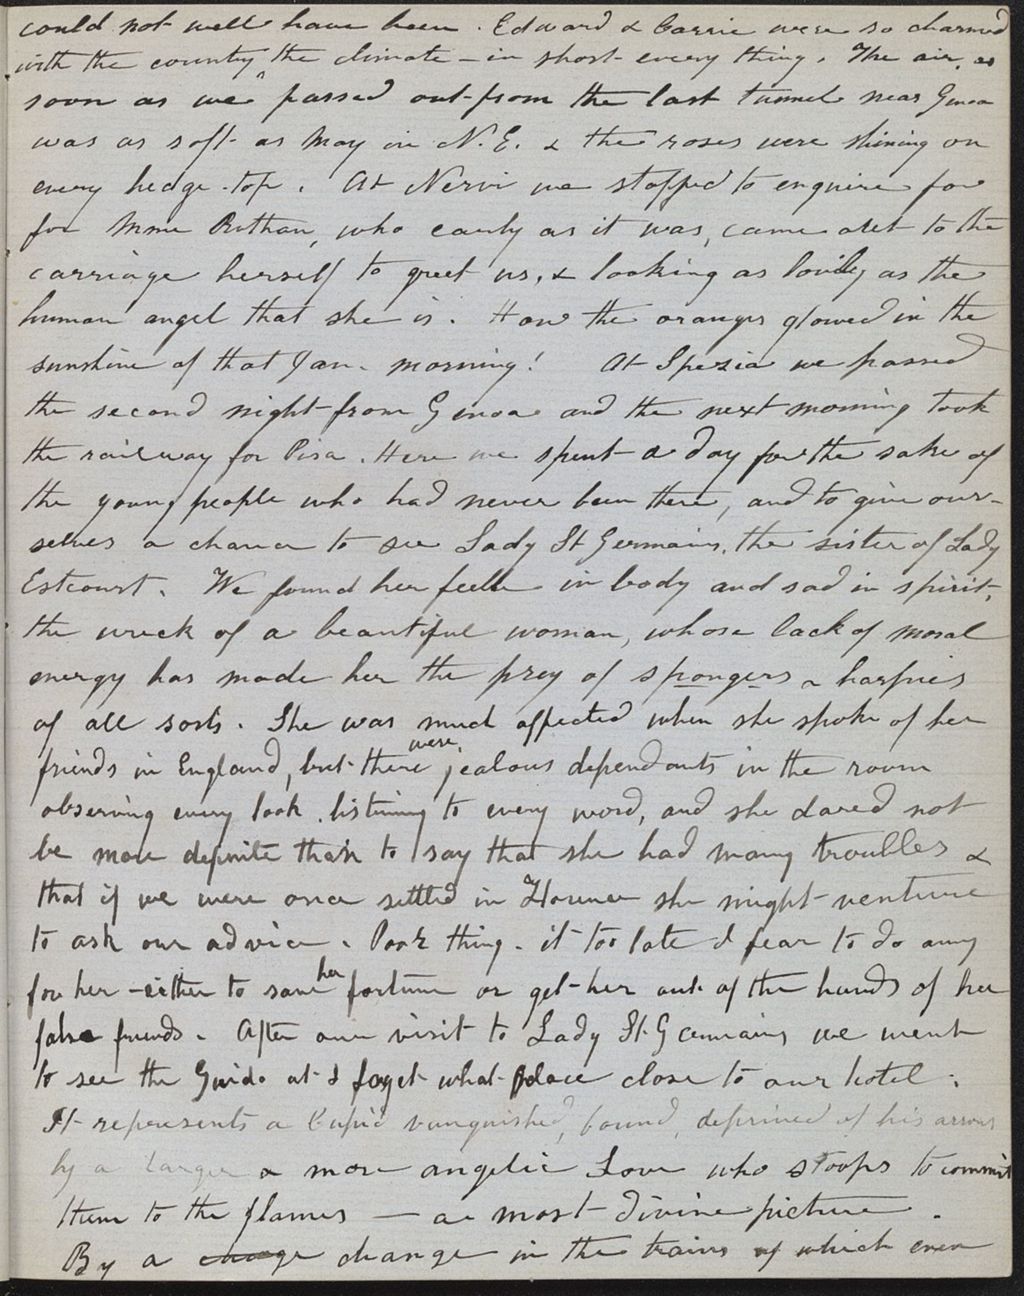 could not well have been. Edward & Carrie were so charmed
with the country, the climate – in short every thing. The air, as
soon as we passed out from the last tunnel near Genoa
was as soft as May in N.E. & the roses were shining on
every hedge-top. At Nervi we stopped to enquire for
for Mme Rothan, who early as it was, came out to the
carriage herself to greet us, & looking as lovely as the
human angel that she is. How the oranges glowed in the
sunshine of that Jan. morning! At Spezia we passed
the second night from Genoa and the next morning took
the railway for Pisa. Here we spent a day for the sake of
the young people who had never been there, and to give our-
selves a chance to see Lady St Germains, the sister of Lady
Estcourt. We found her feeble in body and sad in spirit,
the wreck of a beautiful woman, whose lack of moral
energy has made her the prey of spongers & harpies
of all sorts. She was much affected when she spoke of her
friends in England, but there were jealous dependants in the room
observing every look, listening to every word, and she dared not
be more definite than to say that she had many troubles &
that if we were once settled in Florence she might venture
to ask our advice. Poor thing. it too late I fear to do any
for her – either to save her fortune or get her out of the hands of her
false friends. After our visit to Lady St Germains we went
to see the Guido at I forget what place close to our hotel.
It represents a Cupid vanquished, bound, deprived of his arrows
by a larger & more angelic Love who stoops to commit
them to the flames — a most divine picture.
By a change in the trains of which even